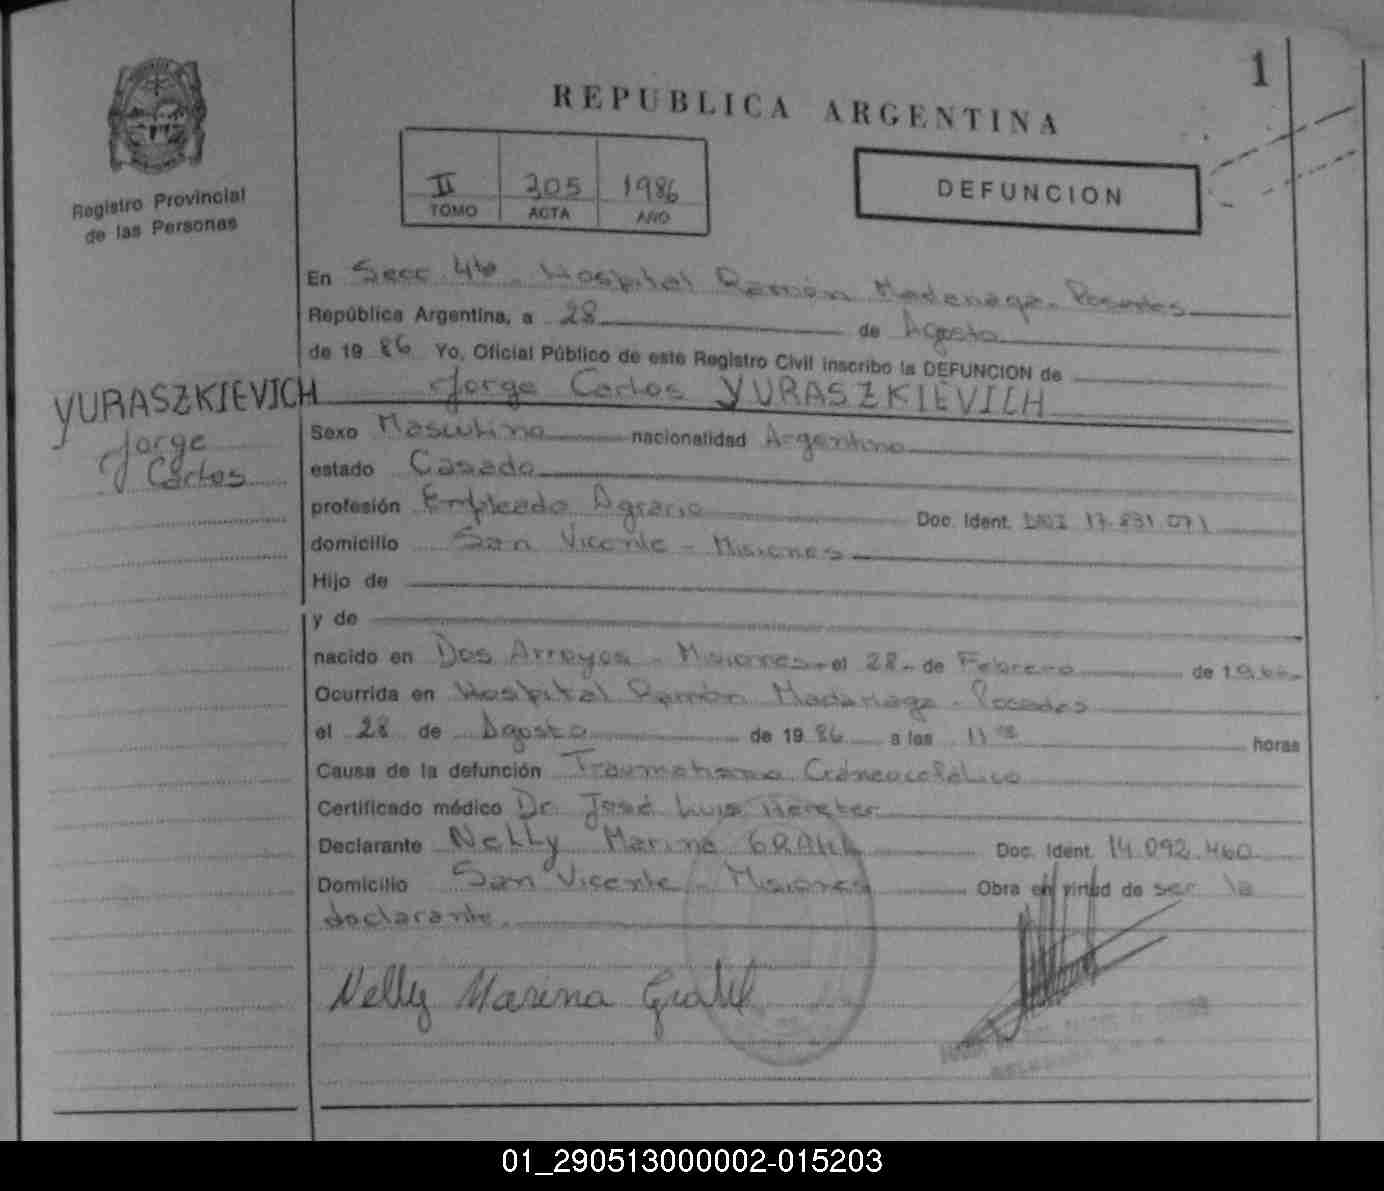 1
REPUBLICA ARGENTINA
Registro Provincial
de las Personas
II 305 1986
TOMO ACTA AÑO
DEFUNCION
En Secc. 4ta. Hospital Ramón Madariaga. Posadas
República Argentina, a 28 de Agosto
de 19 86 Yo, Oficial Público de este Registro Civil inscribo la DEFUNCION de
Jorge Carlos YURASZKIEVICH
YURASZKIEVICH
Jorge
Carlos
Sexo Masculino nacionalidad Argentino
estado Casado
profesión Empleado Agrario Doc. Ident. DNI 17.831.071
domicilio San Vicente - Misiones
Hijo de
y de
nacido en Dos Arroyos - Misiones - el 28 - de Febrero de 19
Ocurrida en Hospital Ramón Madariaga - Posadas
el 28 de Agosto de 19 86 a las 11 horas
Causa de la defunción Traumatismo Craneocefálico
Certificado médico Dr. José Luis
Declarante Nelly Marina GRAHL Doc. Ident. 14.092.460
Domicilio San Vicente - Misiones Obra en virtud de ser la
declarante.
Nelly Marina Grahl
01_290513000002-015203